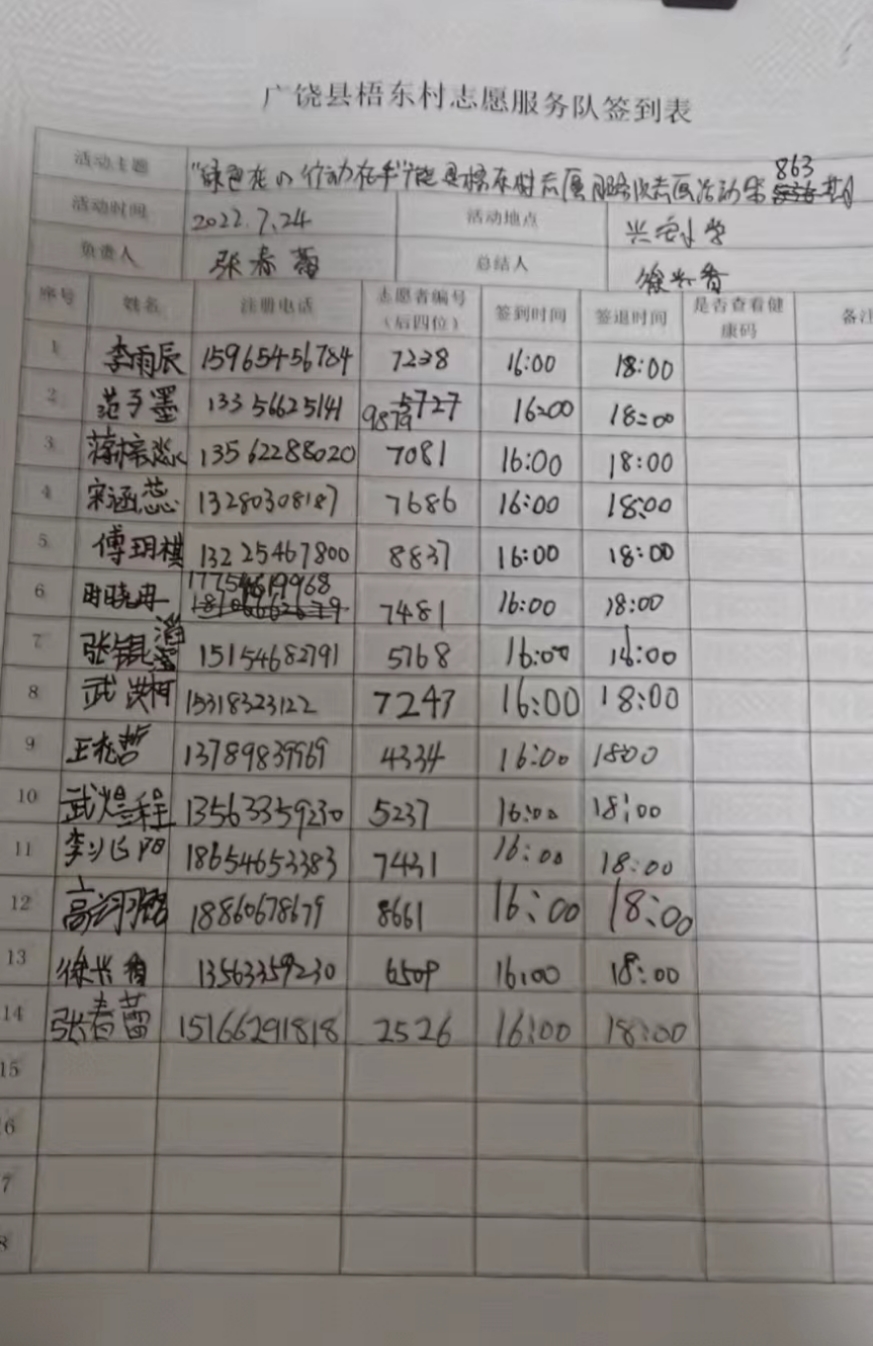 广饶县梧东村志愿服务队签到表
活动主题 "绿色在心 行动在手"广饶县梧东村志愿服务队志愿活动第863期
活动时间 2022.7.24 活动地点 兴安小学
负责人 张春蕾 总结人 徐兴香
序号 姓名 注册电话 志愿者编号（后四位） 签到时间 签退时间 是否查看健康码 备注
1 李雨辰 15965456784 7238 16:00 18:00
2 范予墨 13356625141 9879 16:00 18:00
3 蒋梓 13562288020 7081 16:00 18:00
4 宋涵蕊 13280308187 7686 16:00 18:00
5 傅玥祺 13225467800 8837 16:00 18:00
6 时晓冉 17754619968 7481 16:00 18:00
7 张锟滔 15154682791 5768 16:00 18:00
8 武洪柯 15318323122 7247 16:00 18:00
9 哲 13789839969 4334 16:00 18:00
10 武煜程 13563359230 5237 16:00 18:00
11 李 阳 18654653383 7431 16:00 18:00
12 高 18860678679 8661 16:00 18:00
13 徐兴香 13563359230 6509 16:00 18:00
14 张春蕾 15166291818 2526 16:00 18:00
15
6
7
8